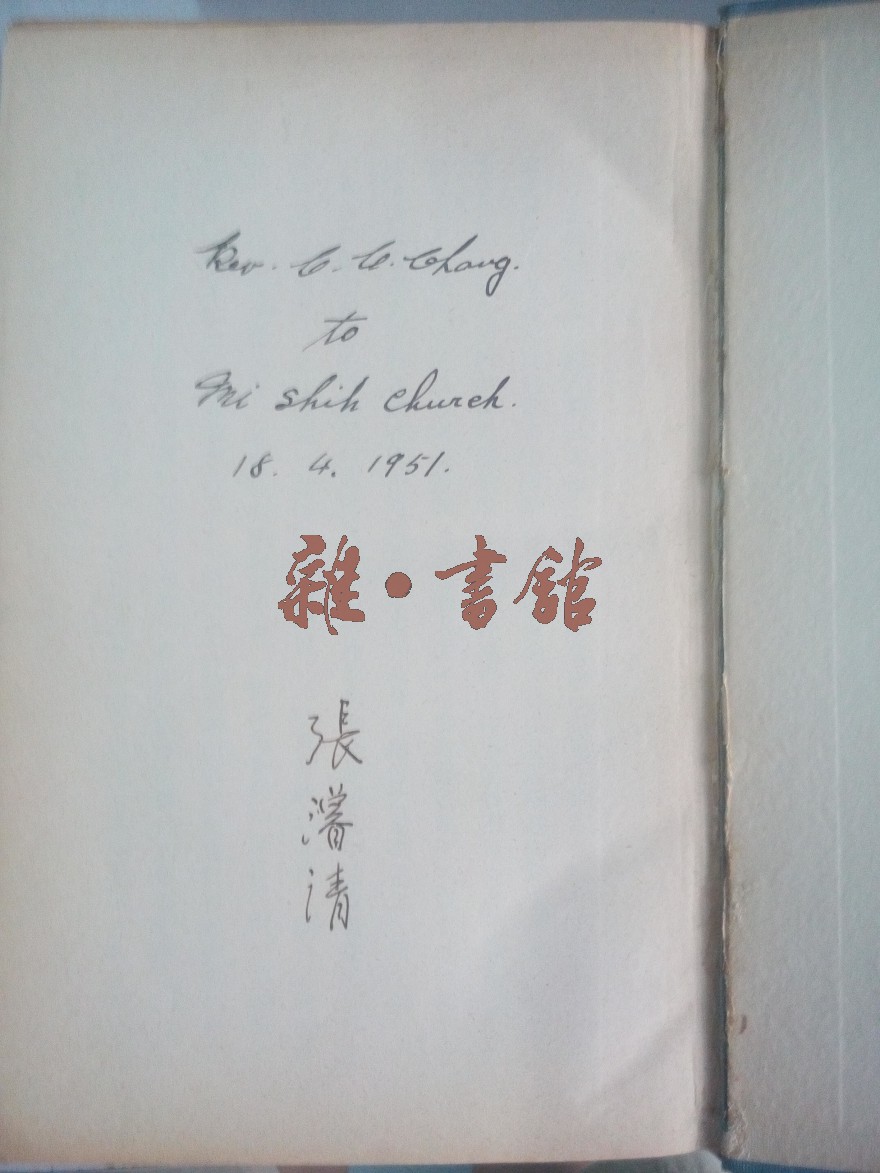 Rev. C. C. Chang.
to
Mi Shih Church.
18. 4. 1951.
雜·書館
張
濬
清